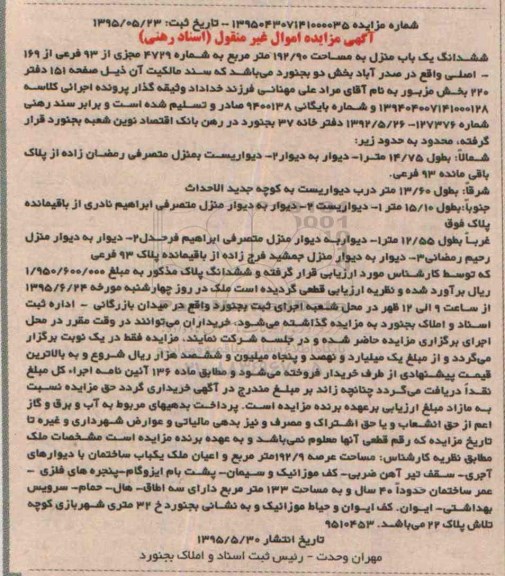 شماره مزایده ۱۳۹۵۰۴۳۰۷۱۴۱۰۰۰۰۳۵ - تاریخ ثبت: ۱۳۹۵/۰۵/۲۳
آگهی مزایده اموال غیر منقول (اسناد رهنی)
ششدانگ یک باب منزل به مساحت ۱۹۲/۹۰ متر مربع به شماره ۴۷۲۹ مجزی از ۹۳ فرعی از ۱۶۹
- اصلی واقع در صدر آباد بخش دو بجنورد می‌باشد که سند مالکیت آن ذیل صفحه ۱۵۱ دفتر
۲۲۰ بخش مزبور به نام آقای مراد علی مهنانی فرزند خداداد وثیقه گذار پرونده اجرائی کلاسه
۱۳۹۴۰۴۰۰۷۱۴۱۰۰۰۱۲۸ و شماره بایگانی ۹۴۰۰۱۳۸ صادر و تسلیم شده است و برابر سند رهنی
شماره ۱۲۷۳۷۶- ۱۳۹۲/۵/۲۶ دفتر خانه ۳۷ بجنورد در رهن بانک اقتصاد نوین شعبه بجنورد قرار
گرفته، محدود به حدود زیر:
شمالاً: بطول ۱۴/۷۵ متر ۱- دیوار به دیوار ۲- دیواریست بمنزل متصرفی رمضان زاده از پلاک
باقی مانده ۹۳ فرعی.
شرقاً: بطول ۱۳/۶۰ متر درب دیواریست به کوچه جدید الاحداث
جنوباً: بطول ۱۵/۱۰ متر ۱- دیواریست ۲- دیوار به دیوار منزل متصرفی ابراهیم نادری از باقیمانده
پلاک فوق
غرباً بطول ۱۲/۵۵ متر ۱- دیوار به دیوار منزل متصرفی ابراهیم فرحدل ۲- دیوار به دیوار منزل
رحیم رمضانی ۳- دیوار به دیوار منزل جمشید فرج زاده از باقیمانده پلاک ۹۳ فرعی
که توسط کارشناس مورد ارزیابی قرار گرفته و ششدانگ پلاک مذکور به مبلغ ۱/۹۵۰/۶۰۰/۰۰۰
ریال برآورد شده و نظریه ارزیابی قطعی گردیده است ملک در روز چهارشنبه مورخه ۱۳۹۵/۶/۲۴
از ساعت ۹ الی ۱۲ ظهر در محل شعبه اجرای ثبت بجنورد واقع در میدان بازرگانی - اداره ثبت
اسناد و املاک بجنورد به مزایده گذاشته می‌شود. خریداران می‌توانند در وقت مقرر در محل
اجرای برگزاری مزایده حاضر شده و در جلسه شرکت نمایند. مزایده فقط در یک نوبت برگزار
می‌گردد و از مبلغ یک میلیارد و نهصد و پنجاه میلیون و ششصد هزار ریال شروع و به بالاترین
قیمت پیشنهادی از طرف خریدار فروخته می‌شود و مطابق ماده ۱۳۶ آئین نامه اجراء، کل مبلغ
نقداً دریافت می‌گردد چنانچه زائد بر مبلغ مندرج در آگهی خریداری گردد حق مزایده نسبت
به مازاد مبلغ ارزیابی برعهده برنده مزایده است. پرداخت بدهیهای مربوط به آب و برق و گاز
اعم از حق انشعاب و یا حق اشتراک و مصرف و نیز بدهی مالیاتی و عوارض شهرداری و غیره تا
تاریخ مزایده که رقم قطعی آنها معلوم نمی‌باشد و به عهده برنده مزایده است مشخصات ملک
مطابق نظریه کارشناس: مساحت عرصه ۱۹۲/۹متر مربع و اعیان ملک یکباب ساختمان با دیوارهای
آجری- سقف تیر آهن ضربی- کف موزائیک و سیمان- پشت بام ایزوگام- پنجره های فلزی -
عمر ساختمان حدوداً ۴۰ سال و به مساحت ۱۳۳ متر مربع دارای سه اطاق- هال- حمام- سرویس
بهداشتی- ایوان، کف ایوان و حیاط موزائیک و به نشانی بجنورد خ ۳۲ متری شهربازی کوچه
تلاش پلاک ۲۲ می‌باشد. ۹۵۱۰۴۵۳
تاریخ انتشار ۱۳۹۵/۵/۳۰
مهران وحدت - رئیس ثبت اسناد و املاک بجنورد